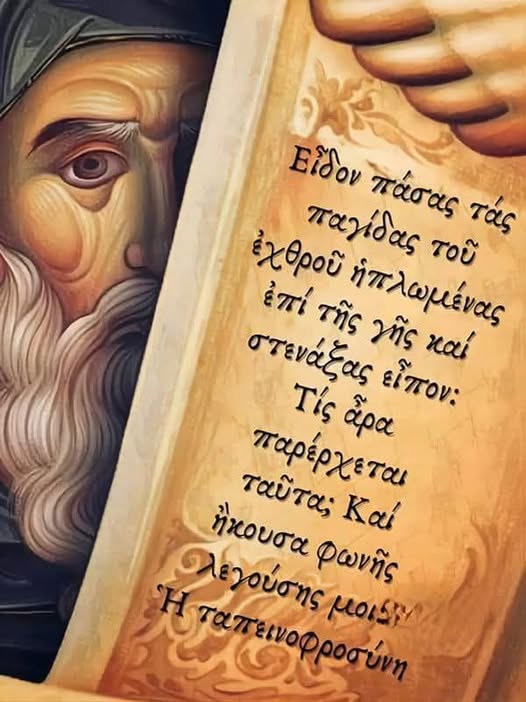 Εἶδον πάσας τάς
παγίδας τοῦ
ἐχθροῦ ἡπλωμένας
ἐπί τῆς γῆς καί
στενάξας εἶπον:
Τίς ἆρα
παρέρχεται
ταῦτα; Καί
ἤκουσα φωνῆς
λεγούσης μοι:
Ἡ ταπεινοφροσύνη